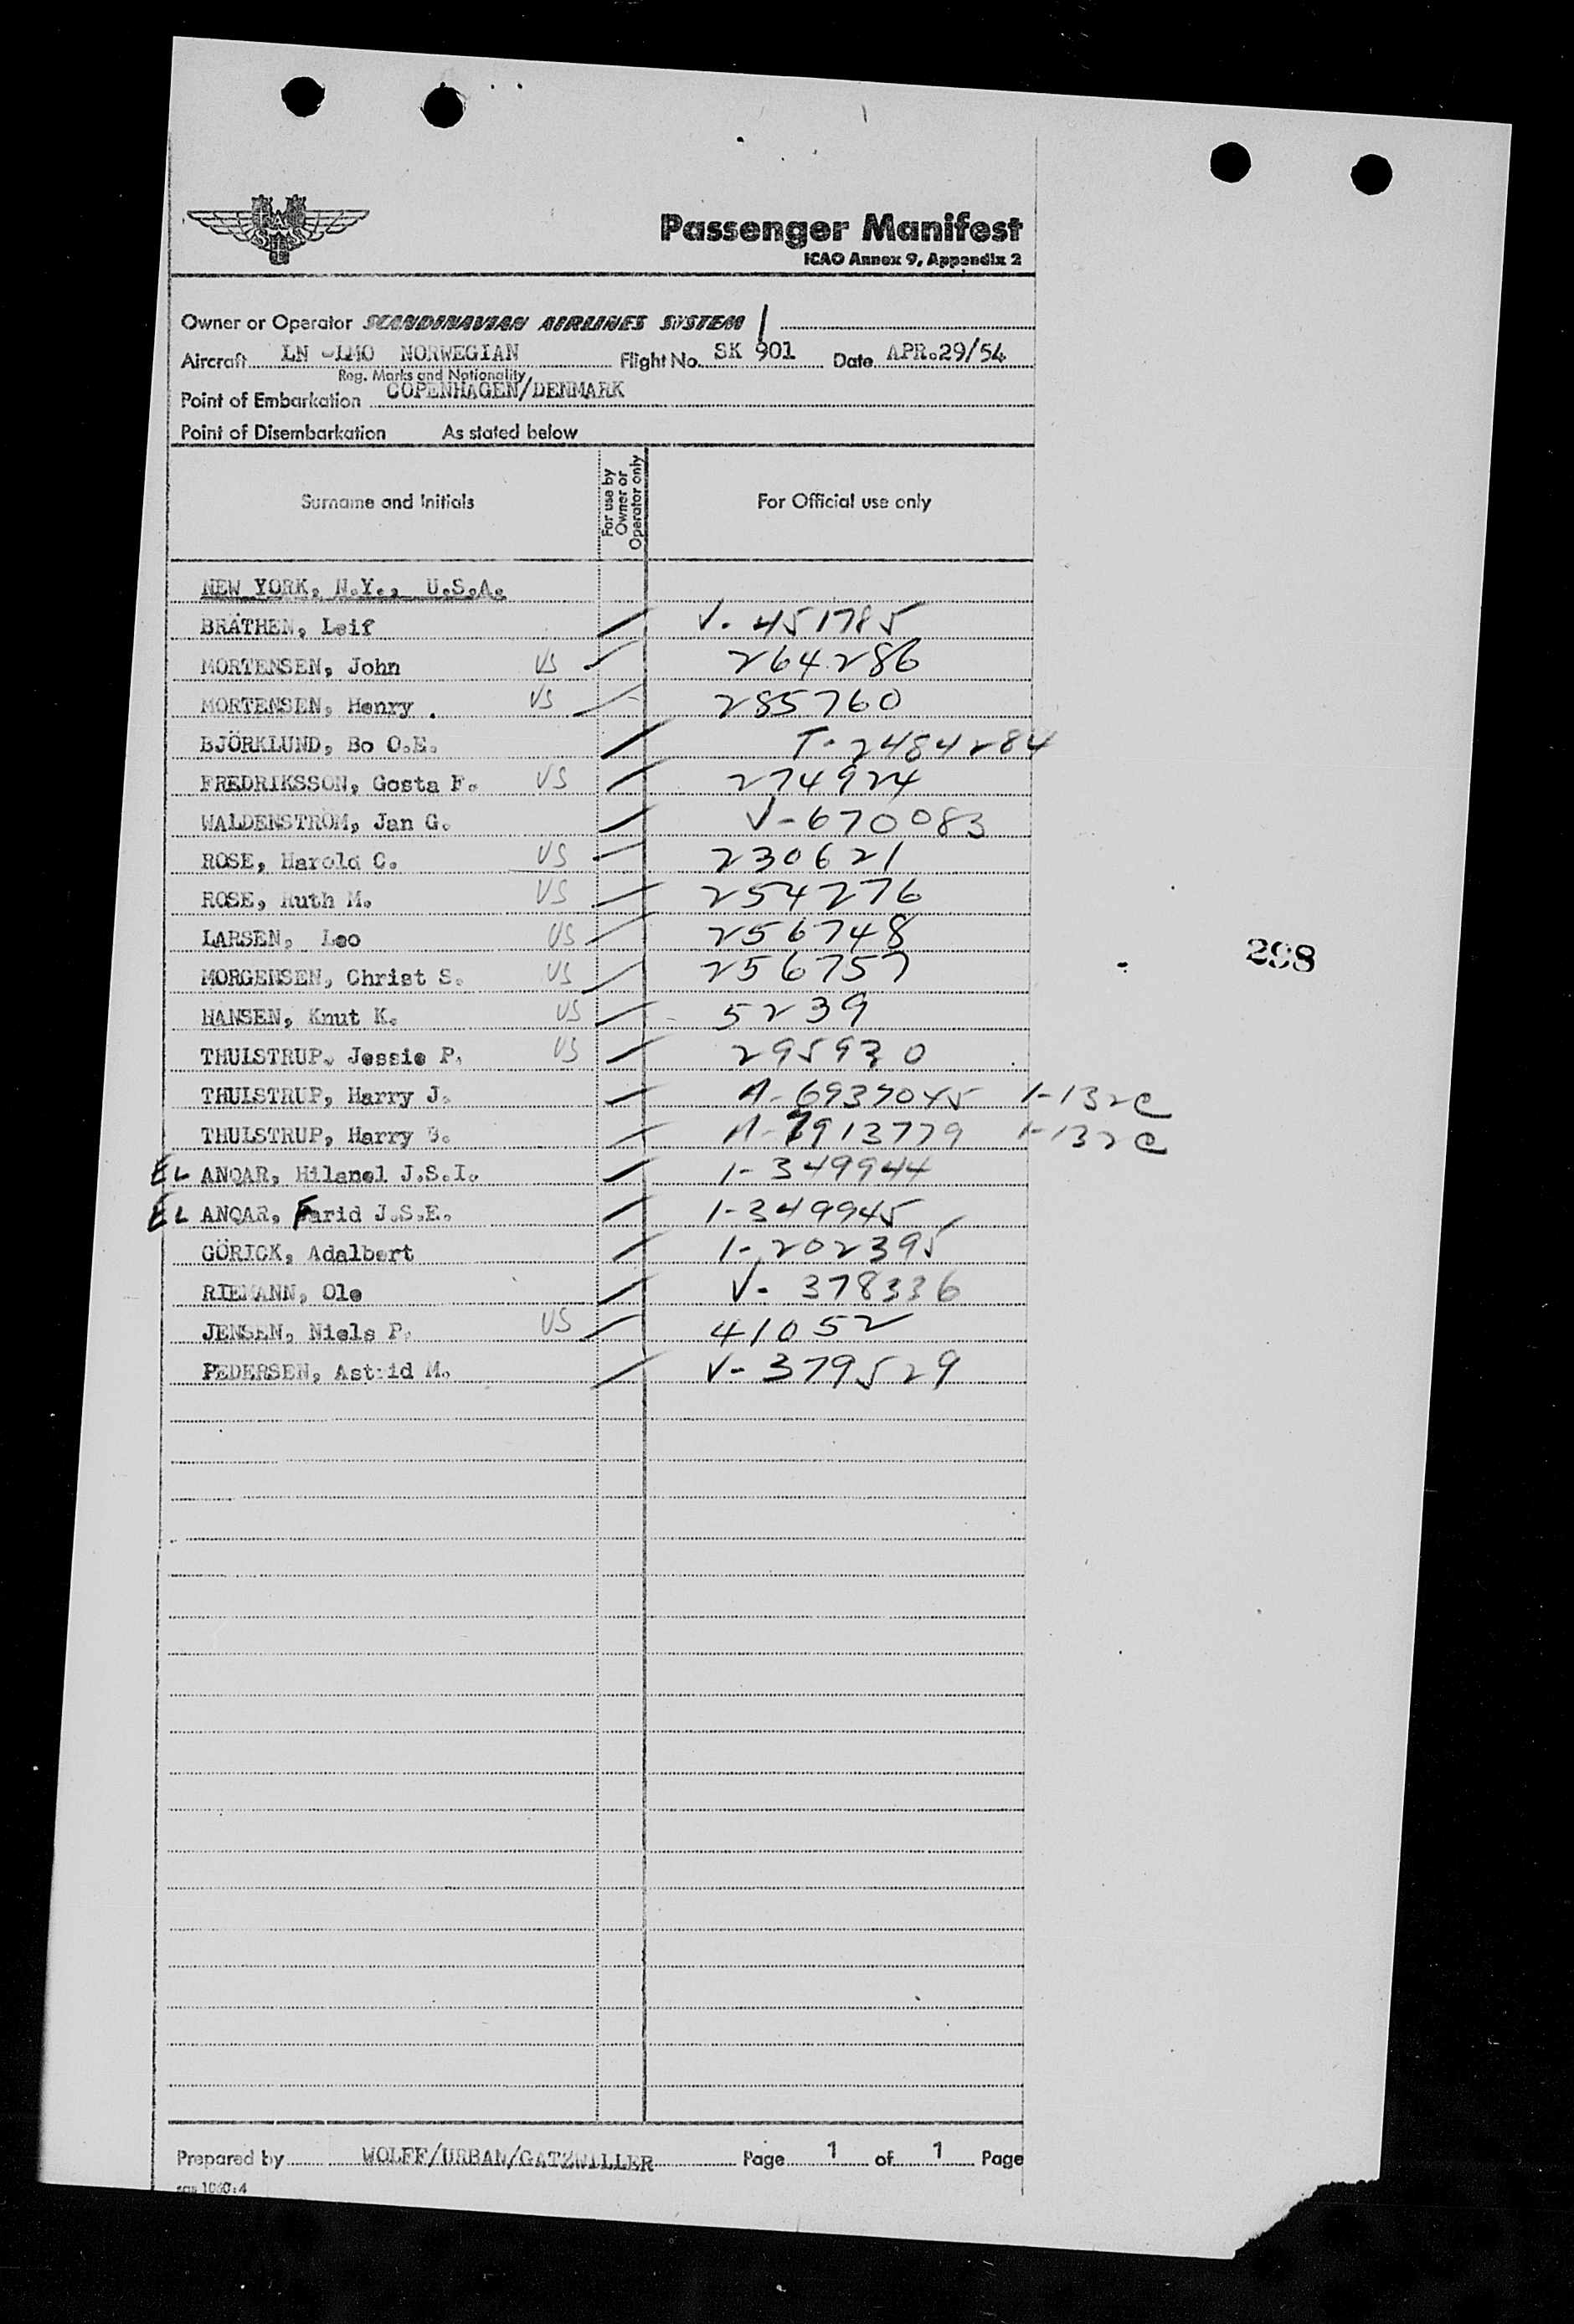 Passenger Manifest
ICAO Annex 9, Appendix 2
Owner or Operator SCANDINAVIAN AIRLINES SYSTEM
Aircraft LN -LMO NORWEGIAN Flight No. SK 901 Date APR.29/54
Reg. Marks and Nationality
Point of Embarkation COPENHAGEN/DENMARK
Point of Disembarkation As stated below
Surname and Initials For use by Owner or Operator only For Official use only
NEW YORK, N.Y., U.S.A.
BRÅTHEN, Leif V. 451785
MORTENSEN, John US 264286
MORTENSEN, Henry . US 285760
BJÖRKLUND, Bo O.E. T-2484284
FREDRIKSSON, Gosta F. US 274924
WALDENSTRÖM, Jan G. V-670083
ROSE, Harold C. US 230621
ROSE, Ruth M. US 254276
LARSEN, Leo US 256748
MORGENSEN, Christ S. US 256757
298
HANSEN, Knut K. US 5239
THULSTRUP, Jessie P. US 295930
THULSTRUP, Harry J. A-6937045 1-132c
THULSTRUP, Harry B. A-7913779 1-132c
EL ANQAR, Hilanel J.S.I. 1-349944
EL ANQAR, Farid J.S.E. 1-349945
GÖRICK, Adalbert 1-202395
RIEMANN, Ole V- 378336
JENSEN, Niels P. US 41052
PEDERSEN, Astrid M. V-379529
Prepared by WOLFF/URBAN/GATZWILLER Page 1 of 1 Page